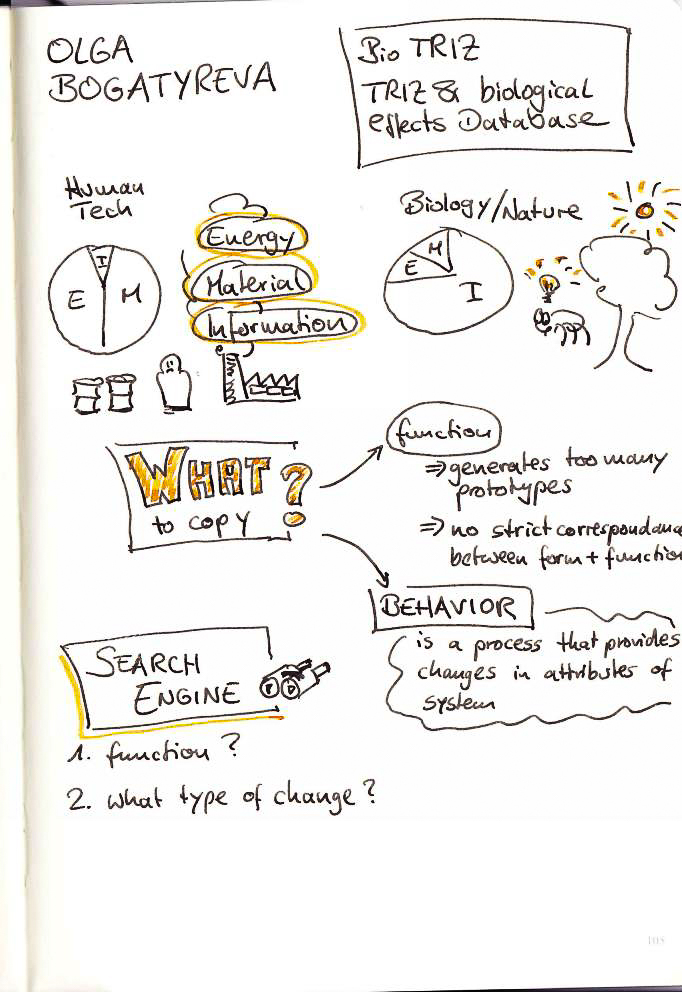 OLGA
BOGATYREVA
Bio TRIZ
TRIZ & biological
effects Database
Human
Tech
I
E
M
Energy
Material
Information
Biology/Nature
M
E
I
WHAT ?
to copy
function
⇒ generates too many
prototypes
⇒ no strict correspondanc
between form + function
BEHAVIOR
is a process that provides
changes in attributes of
system
SEARCH
ENGINE
1. function ?
2. what type of change ?
103